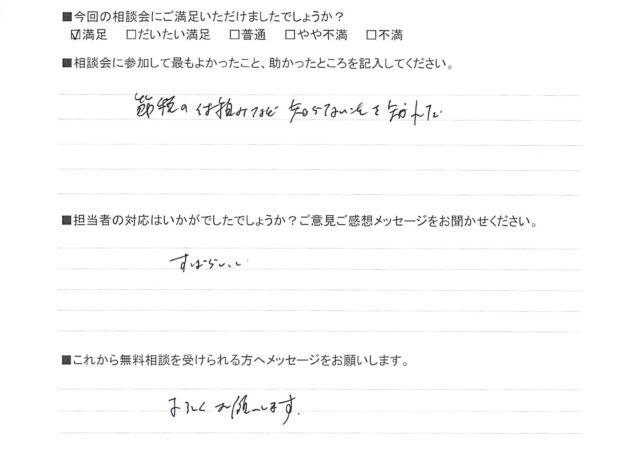 ■今回の相談会にご満足いただけましたでしょうか？
☑満足 □だいたい満足 □普通 □やや不満 □不満
■相談会に参加して最もよかったこと、助かったところを記入してください。
節税の仕組みなど 知らないことを知れた
■担当者の対応はいかがでしたでしょうか？ご意見ご感想メッセージをお聞かせください。
すばらしい
■これから無料相談を受けられる方へメッセージをお願いします。
よろしくお願いします。